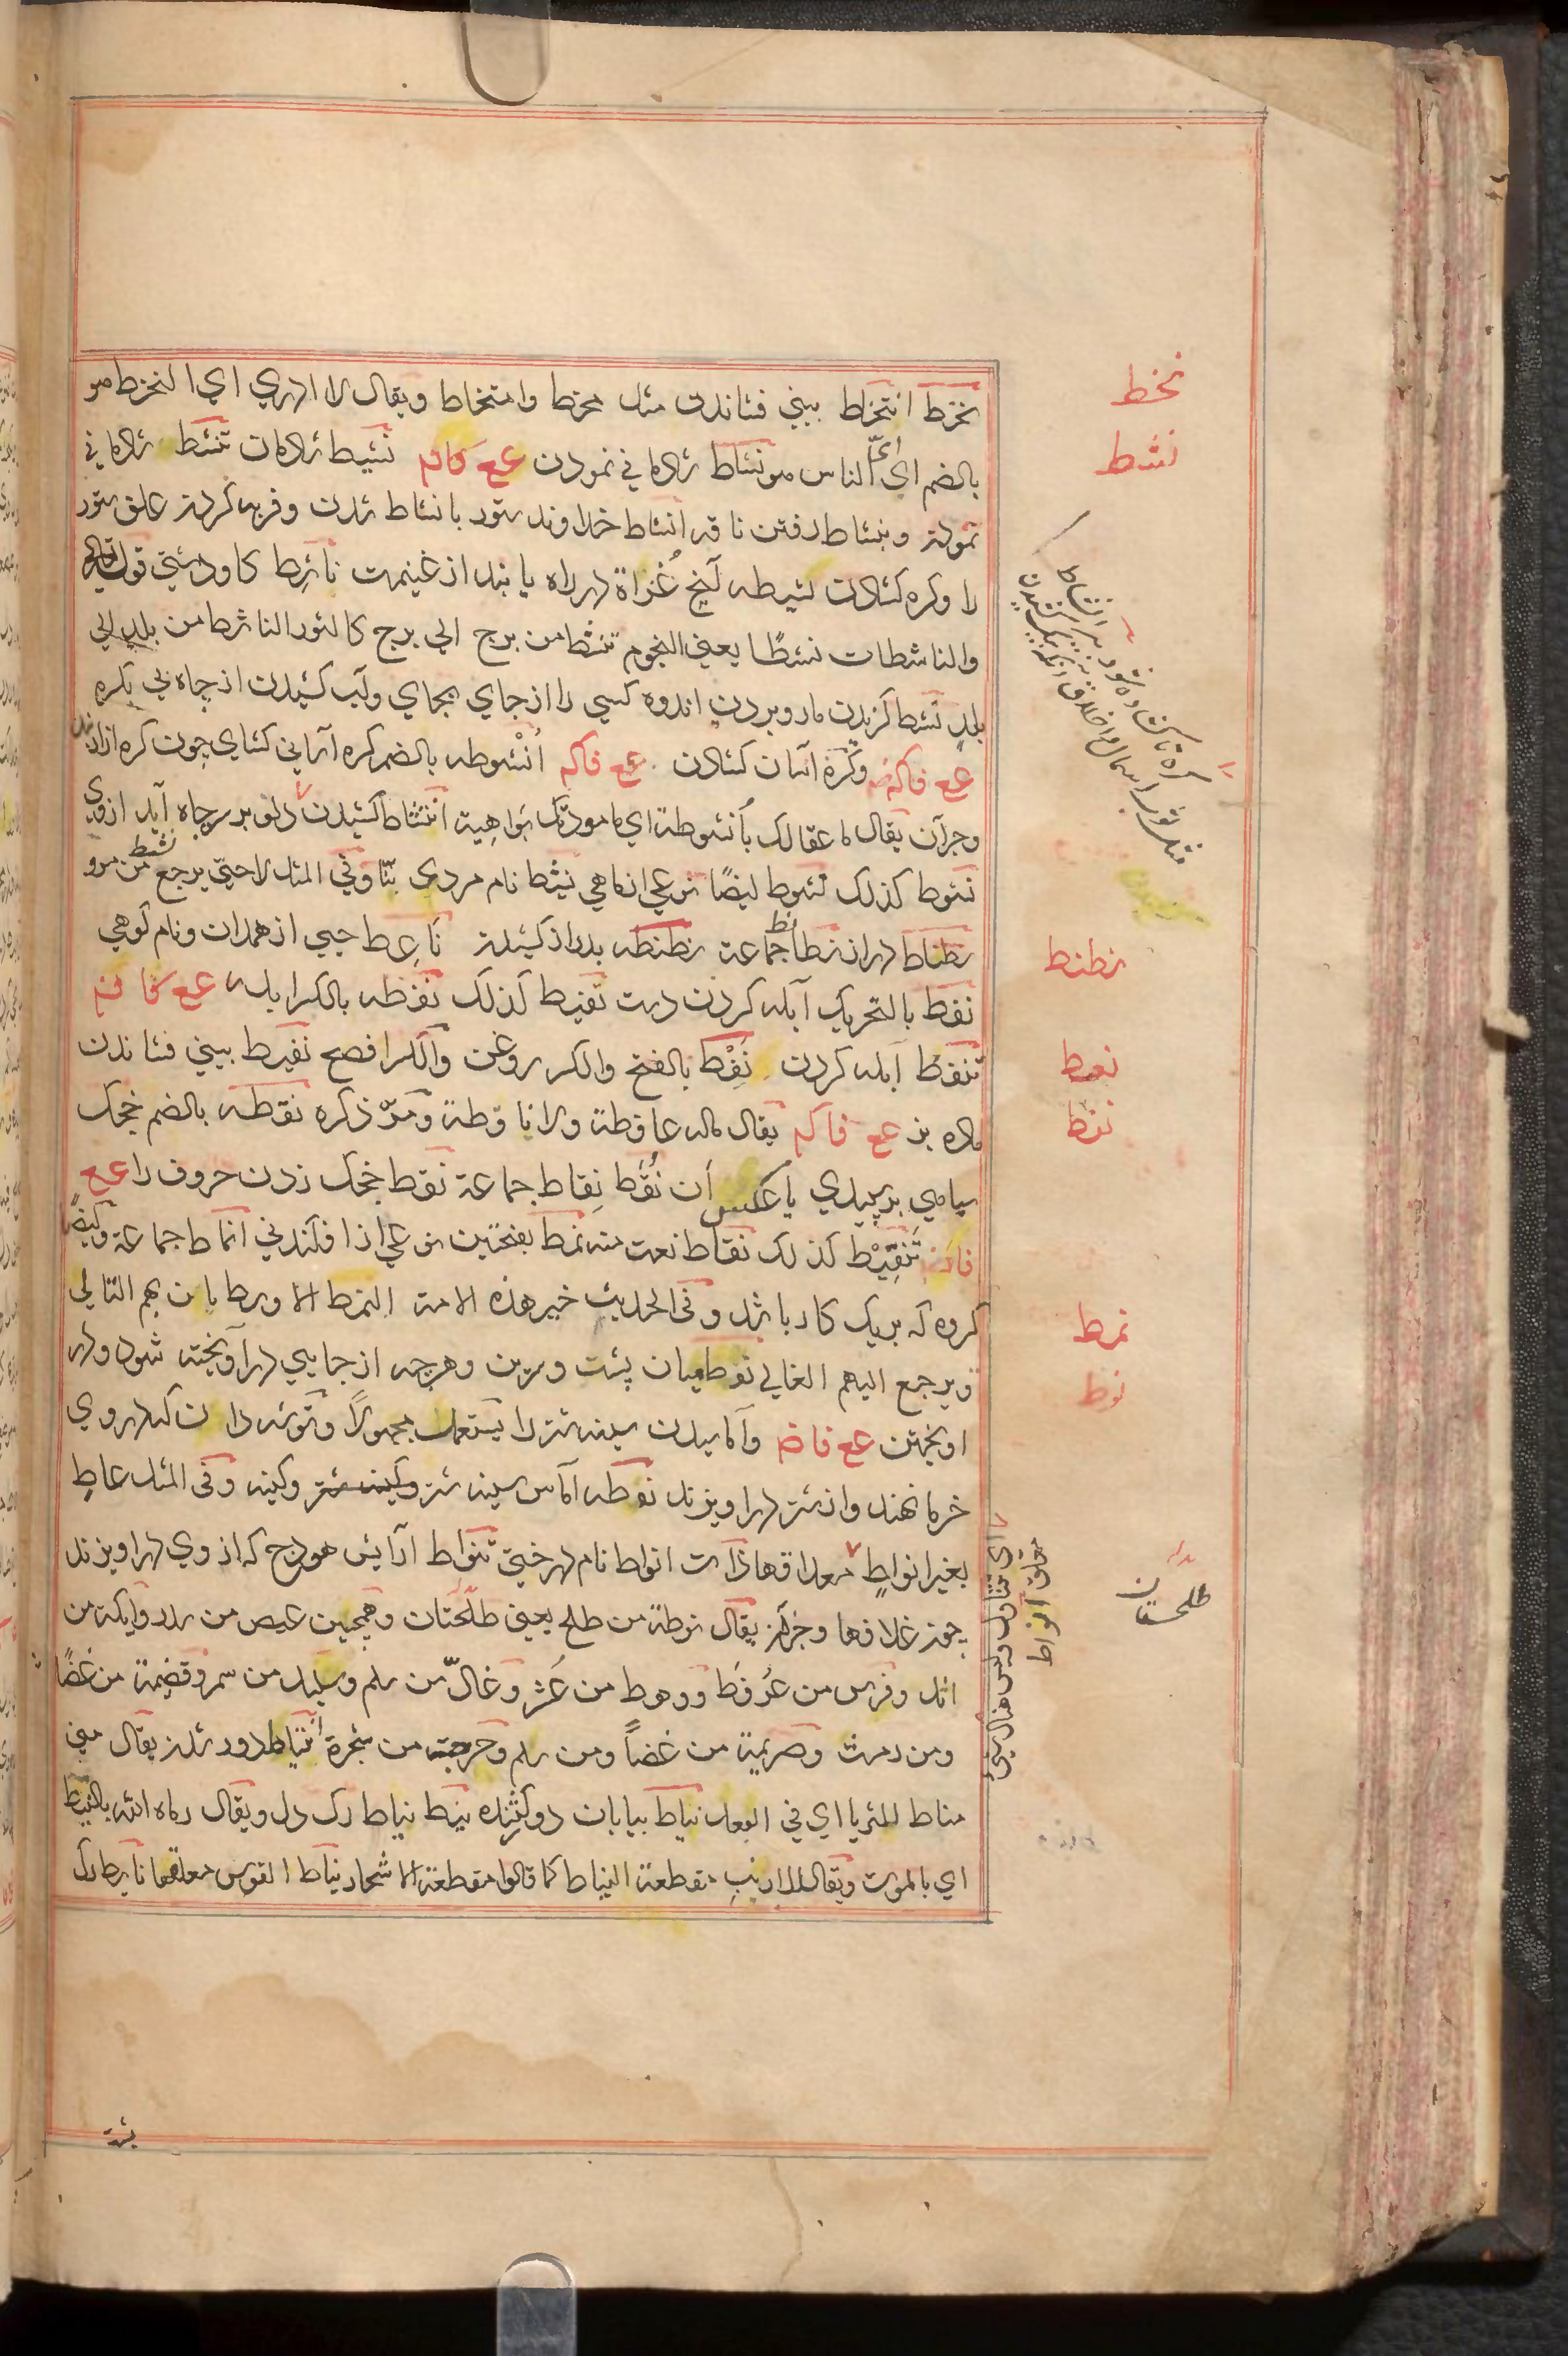 نخط انتخاط بيني فشاندن مثل مخط وامتخاط ويقال لا ادري اي النخط هو
بالضم اي اي الناس هو نشاط شادماني نمودن ع ع ف ك م نشيط شادمان تنشط شادماني
نمودن وبنشاط رفتن ناقه انشاط خداوند ستور با نشاط شدن وفربه كردن علق ستور
را وكره كشادن نشيطه آنچ غزاة در راه يابند از غنيمت ناشط كاو دشتي قوله تعالى
والناشطات نشطًا يعني النجوم تنشط من برج الي برج كالثور الناشط من بلد الي
بلد نشط كزيدن مار وبردن اندوه كسي را از جاي بجاي وآب كشيدن از چاه بي بكره
وكره آسان كشادن انشوطه بالضم كره آساني كشاي چون كره ازار بند
وجز آن يقال ما عقالك بأنشوطة اي ما مودتك بواهية انتشاط كشيدن دلو بر سر چاه آيد از وي
نشوط كذلك نشوط ايضًا نوعي از ماهي نشيط نام مردي بنّا وفي المثل لا حتي يرجع نشيط من مرو
نطناط دراز نطانط جماعة نطنطه بدراز كشيدن ناعط حيي از همدان ونام كوهي
نفط بالتحريك آبله كردن دست نفيط كذلك نفطه بالكسر آبله
تنفط آبله كردن نفط بالفتح والكسر روغن والكسر افصح نفيط بيني فشاندن
ماده بز يقال ماله عافطة ولا نافطة ومرّ ذكره نقطه بالضم خجك
سياهي بر سپيدي يا عكس آن نُقَط نِقاط جماعة نقط خجك زدن حروف را ع ع
تنقيط كذلك نقاط نعت منه نمط بفتحتين نوعي از افكندني انماط جماعة وايضًا
كروه كه بر يك كار باشند وفي الحديث خير هذه الامة النمط الاوسط يلحق بهم التالي
ويرجع اليهم الغالي نوط ميان پشت وسرين وهرچه از جايي در آويخته شود ودر
آويختن وآماسيدن سينه شتر را يستعمل مجهولًا وتوشه دان كه در وي
خرما نهند واز شتر در آويزند نوطه آماس سينه شتر وكينه وفي المثل عاطٍ
بغير انواطٍ معلاقها ذات انواط نام درختي تنواط آرايش هودج كه از وي در آويزند
چون غلافها وجز آن يقال نوطة من طلح يعني طلحتان وهمچنين عيص من سدر وايكة من
اثل وفرش من عرفط ووهط من عشر وغالّ من سلم وسليل من سمر وقضيمة من غضًا
ومن رمث وصريمة من غضاً ومن سلم وحرجة من شجرة انتياط دور شدن يقال مني
مناط الثريا اي في البعد نياط بيابان دو كشنده نيط نياط رك دل ويقال رماه الله بالنيط
اي بالموت ويقال للارنب مقطعة النياط كما قالوا مقطعة الاشحار نياط القوس معلقها نايط رك
نخط
نشط
نطنط
نعط
نفط
نمط
نوط
طلحتان
پشت